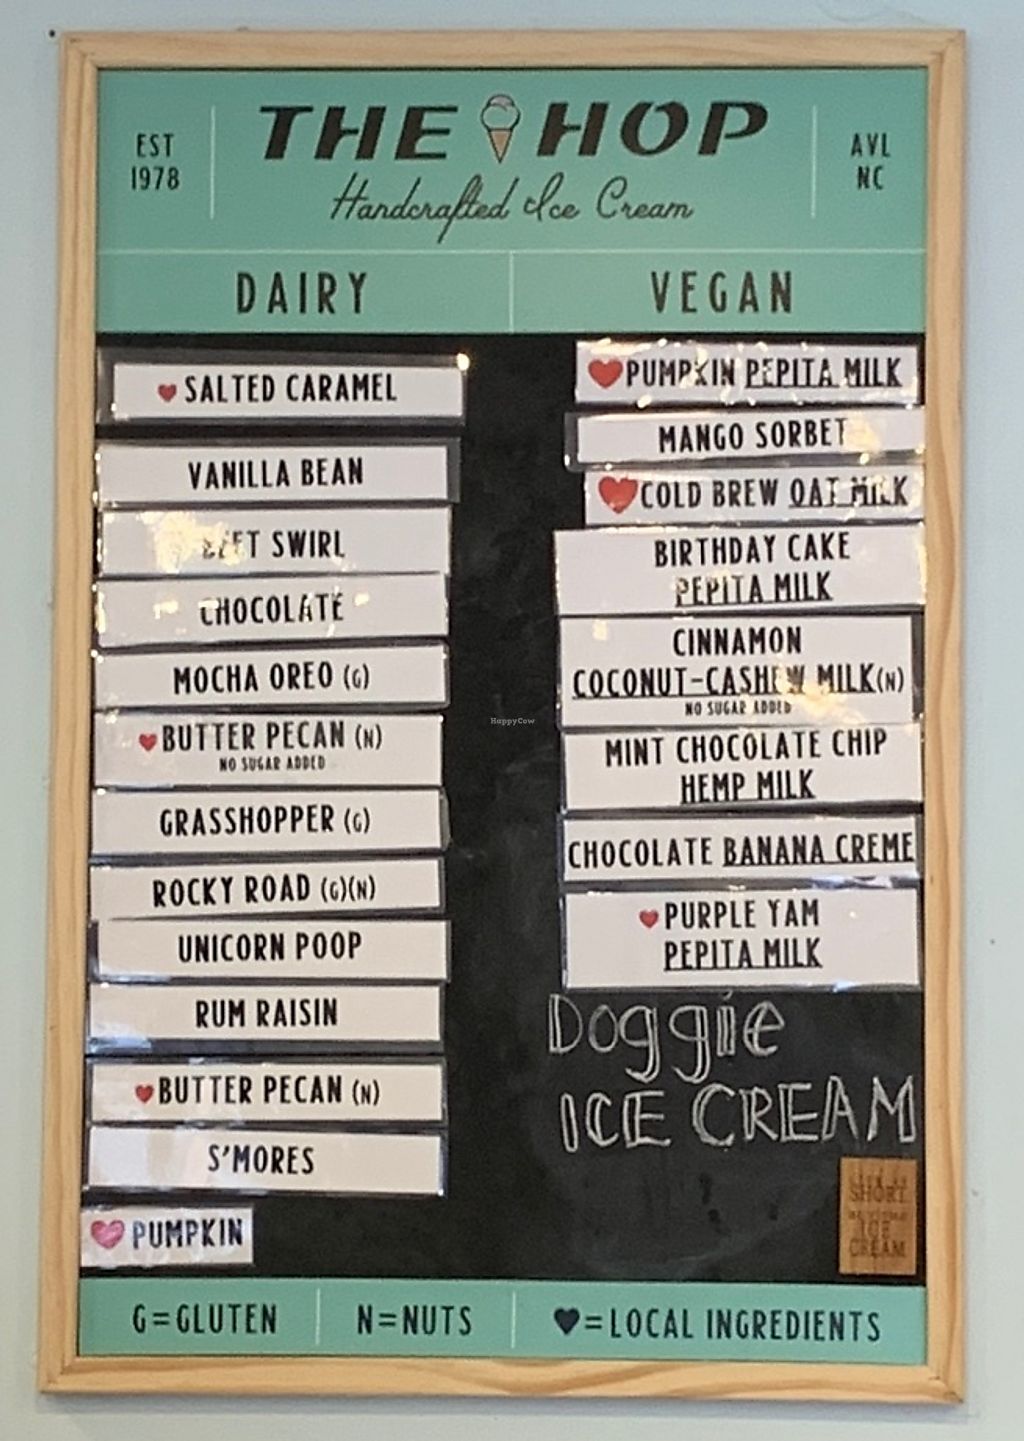 EST
1978
THE HOP
Handcrafted Ice Cream
AVL
NC
DAIRY
VEGAN
SALTED CARAMEL
VANILLA BEAN
SWIRL
CHOCOLATE
MOCHA OREO (G)
BUTTER PECAN (N)
NO SUGAR ADDED
GRASSHOPPER (G)
ROCKY ROAD (G)(N)
UNICORN POOP
RUM RAISIN
BUTTER PECAN (N)
S'MORES
PUMPKIN
PUMPKIN PEPITA MILK
MANGO SORBET
COLD BREW OAT MILK
BIRTHDAY CAKE
PEPITA MILK
CINNAMON
COCONUT-CASHEW MILK(N)
NO SUGAR ADDED
MINT CHOCOLATE CHIP
HEMP MILK
CHOCOLATE BANANA CREME
PURPLE YAM
PEPITA MILK
Doggie
ICE CREAM
SHORT
ICE
CREAM
G=GLUTEN
N=NUTS
♥=LOCAL INGREDIENTS
HappyCow